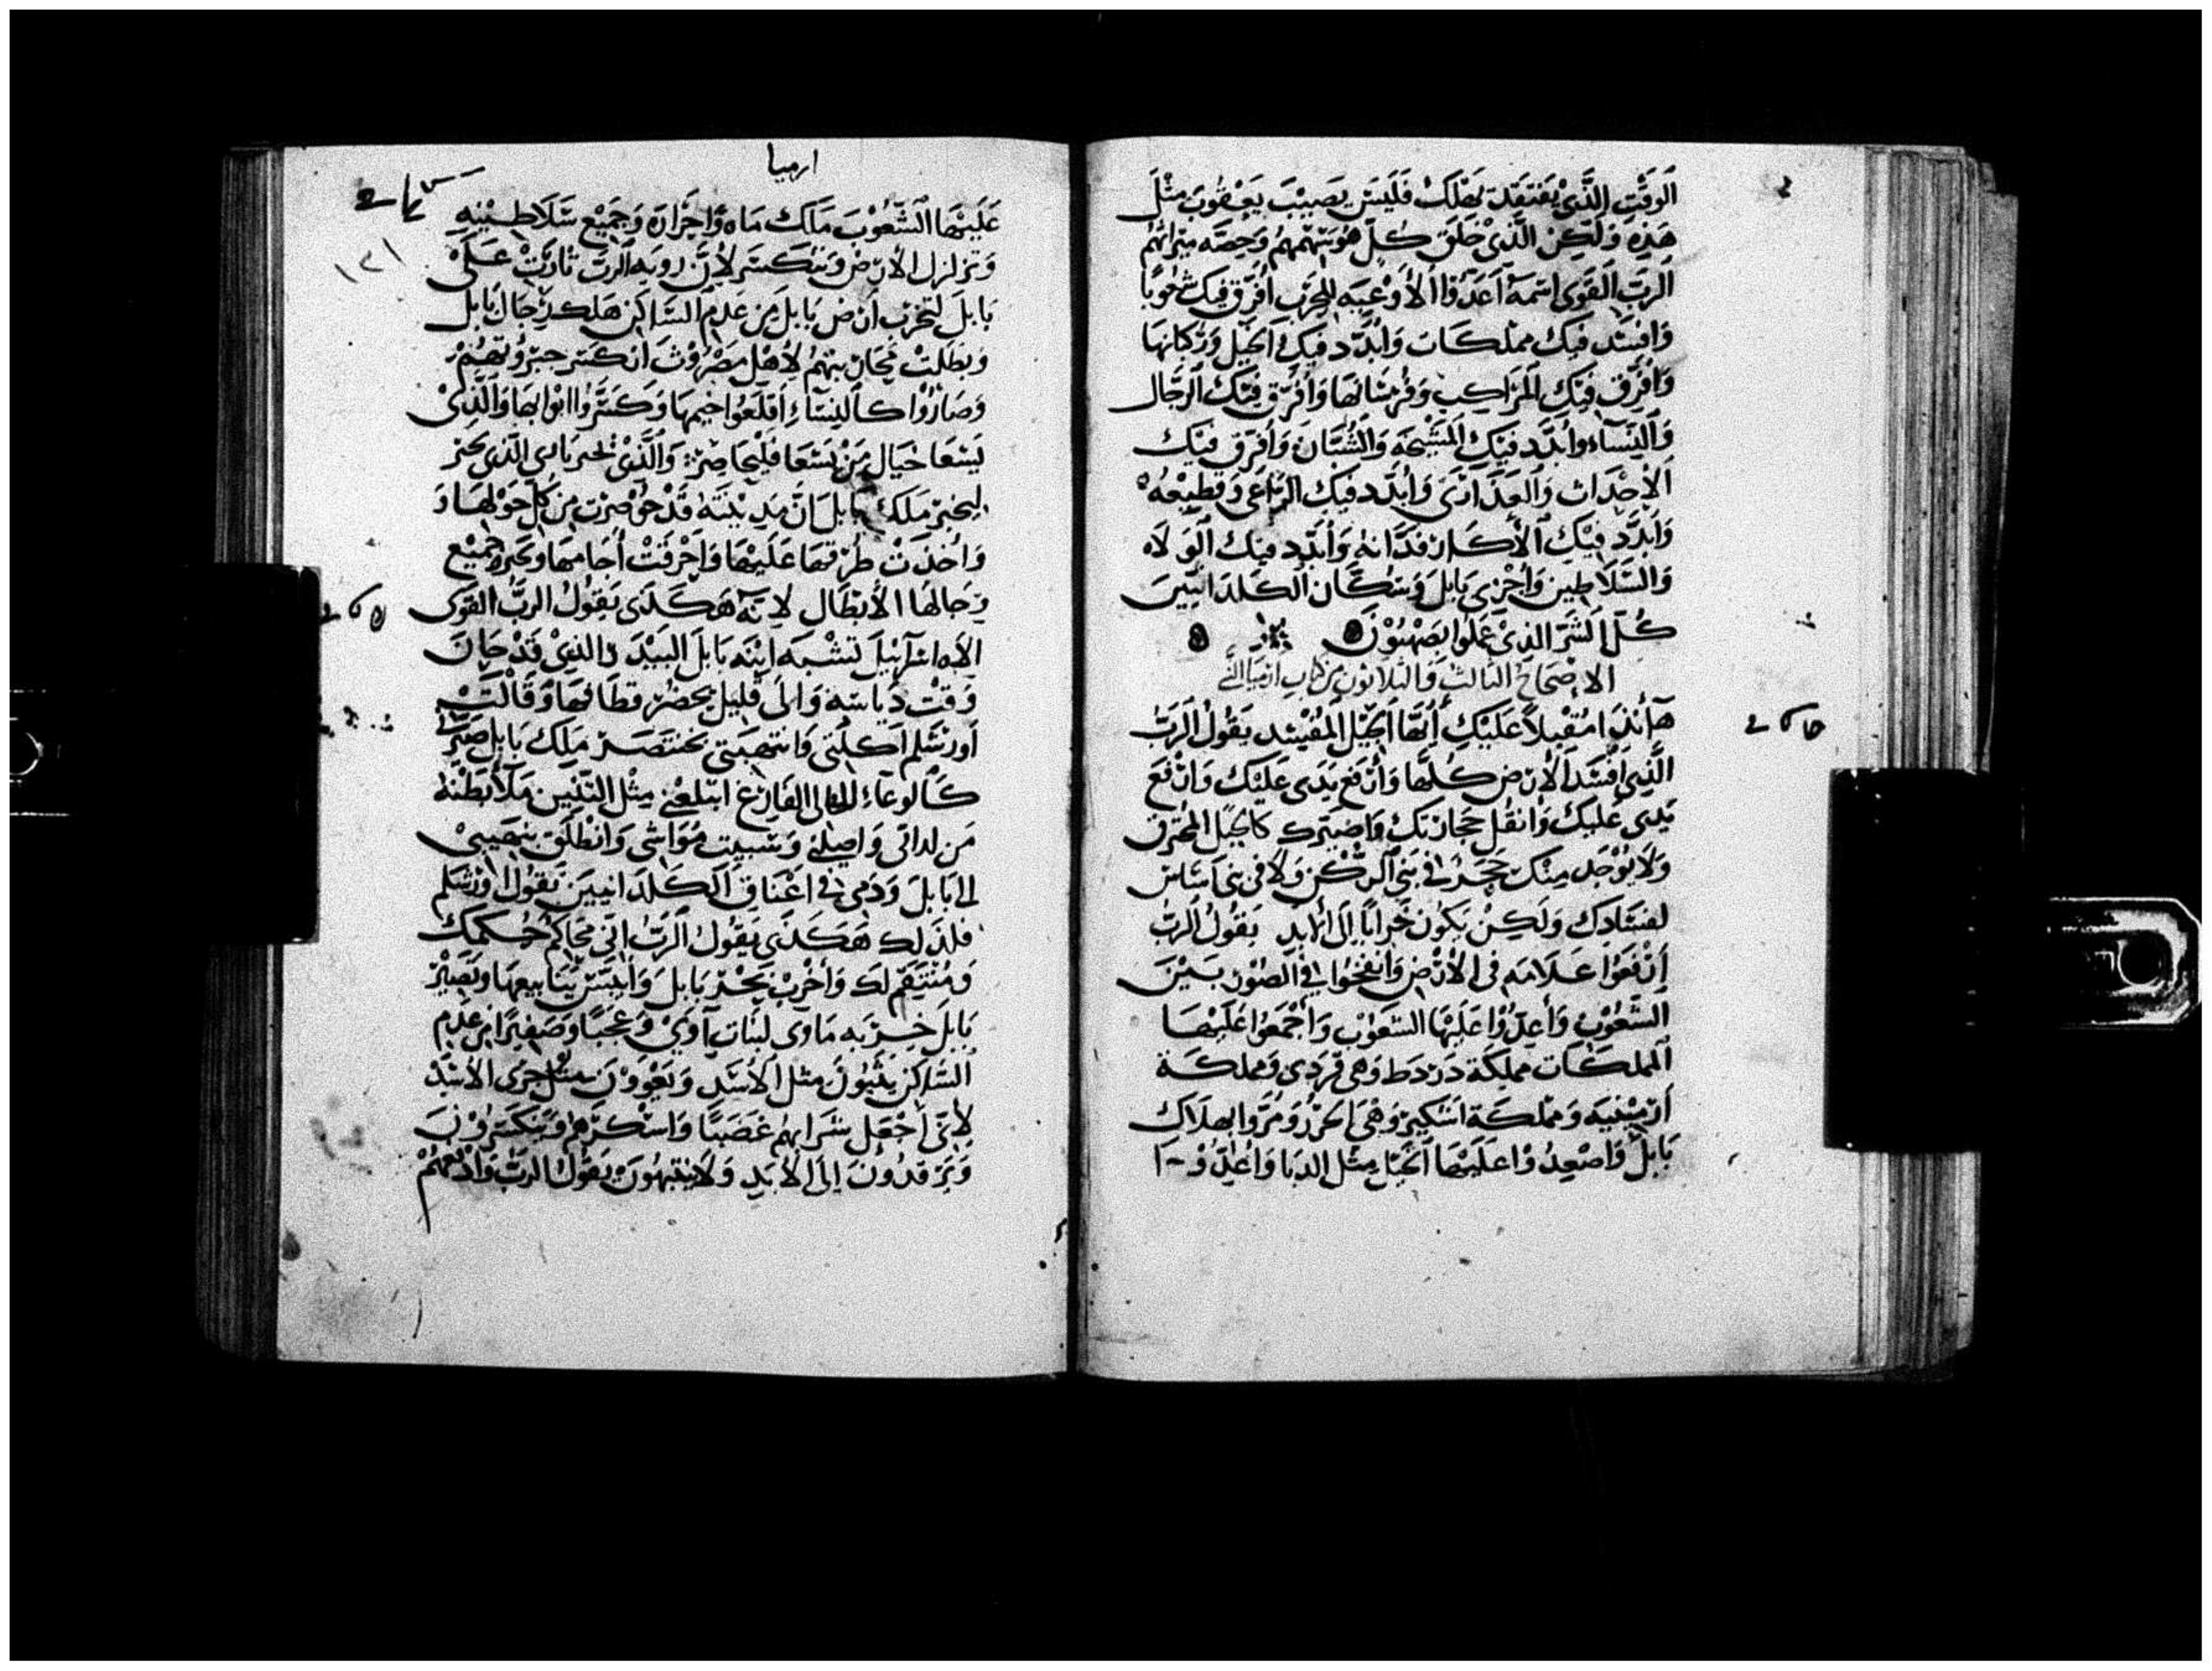 الوَقْتِ الَّذِي يُفتقدتَ تهلك فَليسَ نصِيبَ يَعقوب مِثْلَ
هَذِهِ وَلَكِن الَّذِيْ خَلَقَ كُلّ هُوَ يتهمهُم وَحِصَّه ميراثهُم
الربّ القَوى اسمهُ اَعَدّوا الأَوْعِيَه للحرب أفرّق فيك شعُوبًا
وَافسّد فيك مملكات وَأبدّد فيك الخيل وَركابهَا
وَأفرّق فيك المرَاكِب وَفُرسَانهَا وَأفرّق فيك الرجَال
وَالنسَاء وأبدّد فيك المشيخَه وَالشبَّان وَأفرّق فيك
الأحْدَاث وَالعَذَارَى وَأبدّد فيك الرّاعى وَقطِيْعهُ
وَابدّد فيك الأَكّار وَفدّانهُ وَأبدّد فيك الولاه
وَالسّلَاطِين وَأجْزى بَابلَ وَسُكّان الكلدَانيينَ
كُلّ الشَرّ الذِيْ عَمِلُوا بصَهْيُوْن
الاصْحَاحُ الثالث وَالثلاثون من كتاب ارميَا النَّبي
هَأنذا مُقْبلاً عَلَيْكَ أيّهَا الجبَل المُفسِد يَقُولُ الرَبُّ
الَّذِي افسَدَ الأرض كُلهَا وَأرفع يَدى عَليْك وَارفع
يَدى عَليك وَانقل حجَارتك وَاصَيّرك كالجبَل المحترق
وَلَا يُوْجَد مِنك حَجَرٌ فى بَنى الركن وَلَا فى بنى اسَاسٍ
لفسَادِك وَلَكِنْ يَكُوْن خرَابًا إلَى الابد يَقُولُ الرَبُّ
اِرْفَعُوْا عَلَامَه فى الأرْض وَانْفخُوا فى الصّوْر بَيْنَ
الشّعُوْب وَأَعِدُّوْا عَلَيْهَا الشعُوْب وَاجْمَعُوْا عَلَيْهَا
المملكَات مملكَة دَرْدَط وَهى قردى وَمملكَة
أرمِيْنيَه وَمملكَة اشكير وَهْيَ الخزر وَمُرُوا بهلَاك
بَابل وَاصْعِدُوْا عَلَيْهَا الخيْل مِثل الدبَا وَأعدّوْا
ارميا
١٢١
عَلَيْهَا الشُّعُوْبَ مَلِكَ مَاه وَاجْزَاه وَجَمِيْع سَلَاطِيْنِه
وَتزلزل الأرْض وَتنكسَر لأنّ رويه الرَبّ ثارَتْ عَلَىْ
بَابلَ لتخرب أرْض بَابلَ مِن عَدَم السّاكِن هَلك رجَال بَابل
وَبطَلتْ محاربتهُمْ لأهْل مصْر
وَصَارُوْا كَالنِسَاءِ اقلعُوا خيمهَا وَكسّرُوْا ابْوَابهَا وَالذِىْ
يَسْعَا حيَال مَنْ يَسْعَا وَالَّذِىْ يخبر الذى يخبر
ليخبر مَلكَ بَابلَ أنَّ مَدِيْنَتهُ قَدْ حُوْصِرَت مِن كُلّ حَوْلهَا وَ
وَاُخذَتْ طُرُقهَا عَلَيْهَا وَاحْرقتْ أجَامهَا وَتحيّر جَمِيْع
رِجَالهَا الأبْطَال لانه هَكَذَى يَقُوْلُ الربُّ القَوى
الاه اسرائيلَ تشْبَه ابنَه بَابلَ البيْدَر الذِى قَدْ حَانَ
وَقْت دياسَه وَالى قَليل يحضر قطَافهَا وَقَالَتْ
أورشلم اكلنى وَانتهبَنى بختنصر مَلِك بَابل صَيّرنى
كَالوعَاءِ الخالى الفَارِغ ابتلعنى مِثْل التنّين مَلأ بَطْنهُ
مَن لداتى وَاصلى وَسَبيت مُوَاشى وَانطَلَق بنَصِيبى
الى بَابلَ وَدَمى فى اعْنَاق الكلدَانيينَ تَقُوْل أوْرشلم
فلذَلك هَكَذَى يَقُوْلُ الربّ انى محاكِم حُكمك
وَمُنْتَقِم لَك وَأخْرب بَحْر بَابل وَأيبّس يَنابيعهَا وَتصيْر
بَابلَ خربه مَاوى لبنات آوَى وَعَجَبًا وَصَفيرًا مِن عَدَم
السّاكِن يثبُوْن مثل الأسَد وَيَعْوُوْن مثل جرى الأسْد
لأنى أجْعَل شرَابهُم غَضَبًا وَاسْكرهُم وَيسْكرُوْن
وَيَرْقدُوْنَ اِلَى الأَبَدِ وَلَا ينتبهُوَن يَقُوْلُ الربُّ وَاذْبحهُمْ